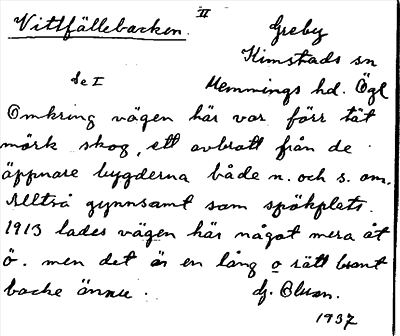 II
Vittfällebacken.
Greby
Kimstads sn
Se I
Memmings hd. Ögl
Omkring vägen här var förr tät
mörk skog, ett avbrott från de
äppnare bygderna både n. och s. om.
Alltså gynnsamt som spökplats.
1913 lades vägen här något mera åt
ö. men det är en lång o rätt brant
backe ännu.
1937